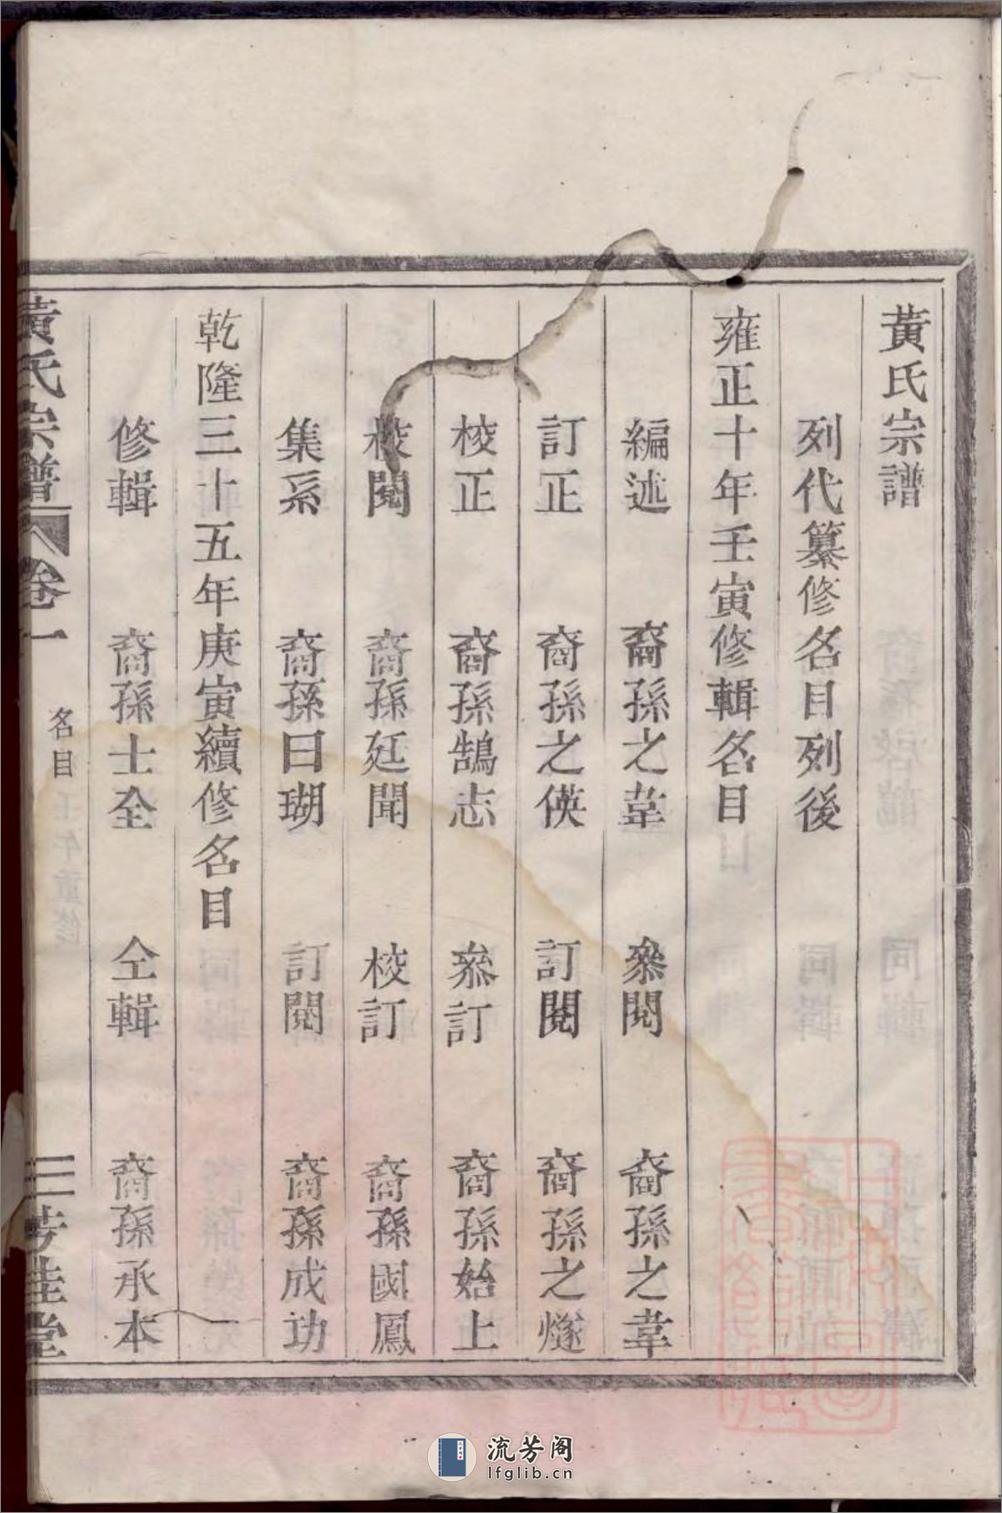 黃氏宗譜
列代纂修名目列後
雍正十年壬寅修輯名目
編述 裔孫之葦 叅閱 裔孫之韋
訂正 裔孫之偀 訂閱 裔孫之燧
校正 裔孫鵠志 叅訂 裔孫始上
校閱 裔孫廷聞 校訂 裔孫國鳳
集系 裔孫曰瑚 訂閱 裔孫成功
乾隆三十五年庚寅續修名目
修輯 裔孫士全 仝輯 裔孫承本
黃氏宗譜 卷一 名目 三芳桂堂
流芳阁
lfglib.cn